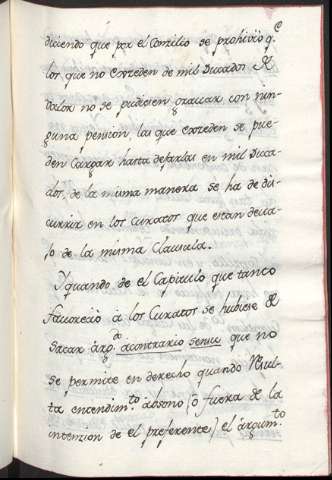 diciendo que por el Concilio se prohivio q.e
los que no exceden de mil Ducados de
valor no se pudiesen gravar con nin-
guna pension, las que exceden se pue-
den Cargar hasta dexarlas en mil Duca-
dos, de la misma manera se ha de dis-
currir en los curatos que estan deva-
jo de la misma Clausula.
Y quando de el Capitulo que tanto
favorecio à los Curatos se hubiese de
sacar arg.to acontrario sensu que no
se permite en derecho quando Resul-
ta entendim.to absono (ò fuera de la
intenzion de el preferente) el argum.to